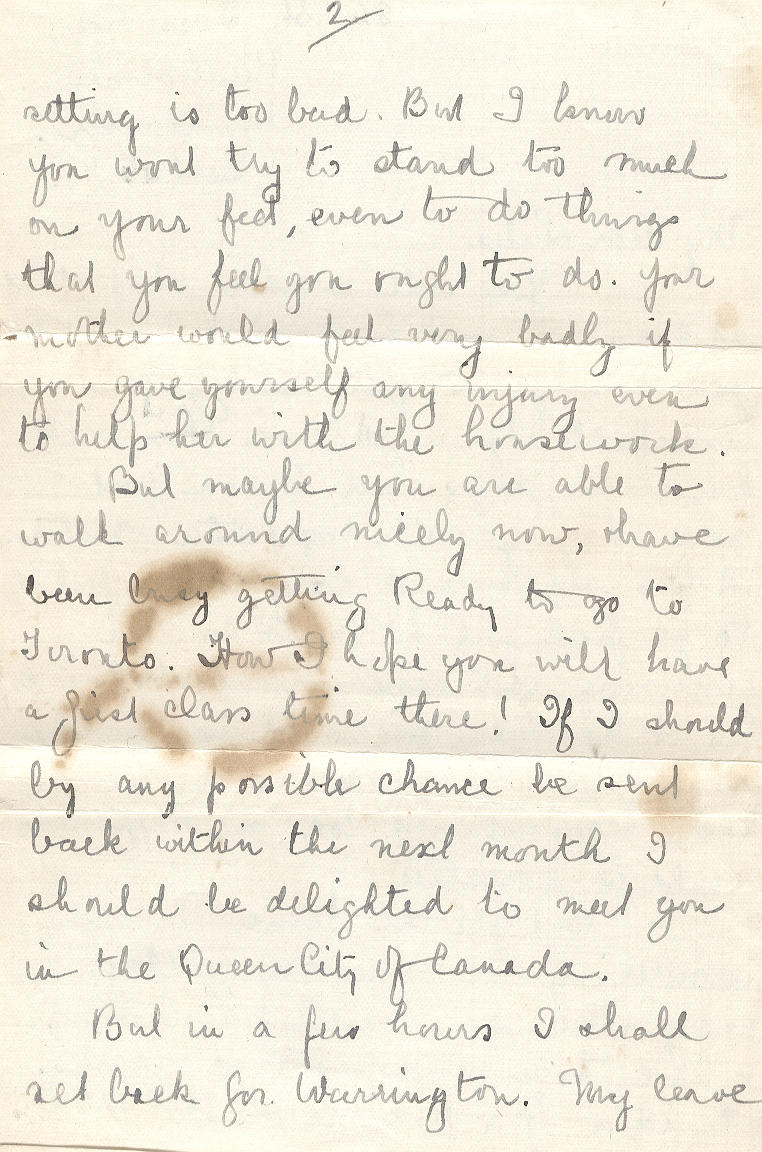 2
setting is too bad. But I know
you wont try to stand too much
on your feet, even to do things
that you feel you ought to do. Your
mother would feel very badly if
you gave yourself any injury even
to help her with the housework.
But maybe you are able to
walk around nicely now, & have
been busy getting Ready to go to
Toronto. How I hope you will have
a first class time there! If I should
by any possible chance be sent
back within the next month I
should be delighted to meet you
in the Queen City of Canada.
But in a few hours I shall
set back for Warrington. My leave